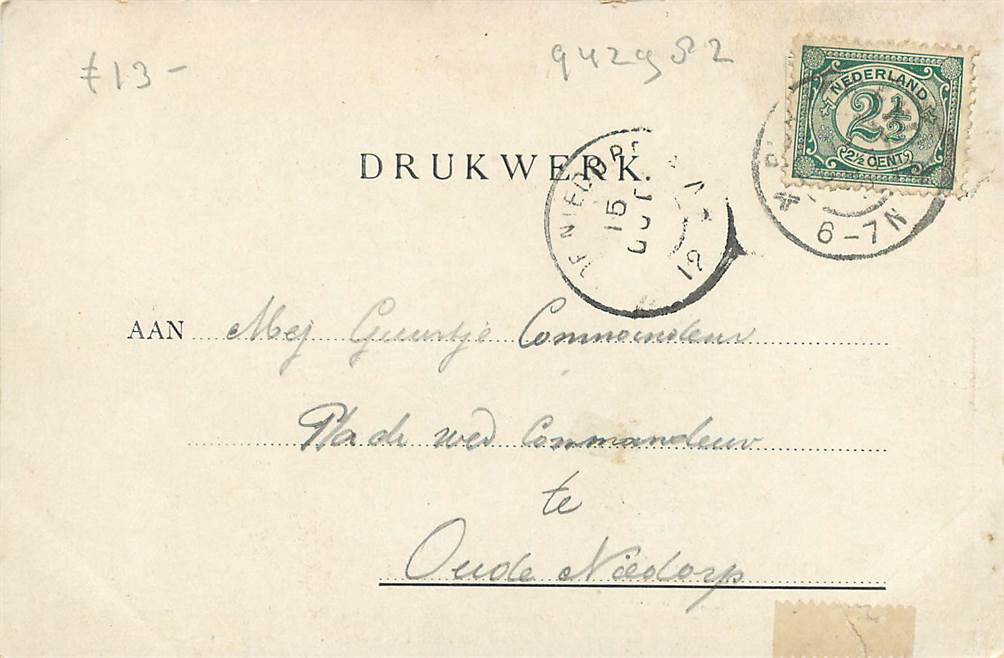 £13-
9429582
NEDERLAND
2½
2½ CENT
6-7N
DRUKWERK.
NIEDORP
15
12
AAN Mej Guurtje Commandeur
P/a de wed Commandeur
te
Oude Niedorp